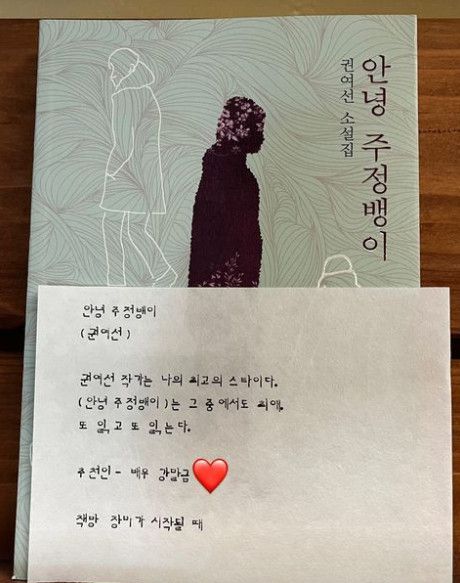 안녕 주정뱅이
권여선 소설집
안녕 주정뱅이
(권여선)
권여선 작가는 나의 최고의 스타이다.
(안녕 주정뱅이)는 그 중에서도 최애.
또 읽고 또 읽는다.
추천인 - 배우 강말금
책방 장미가 시작될 때